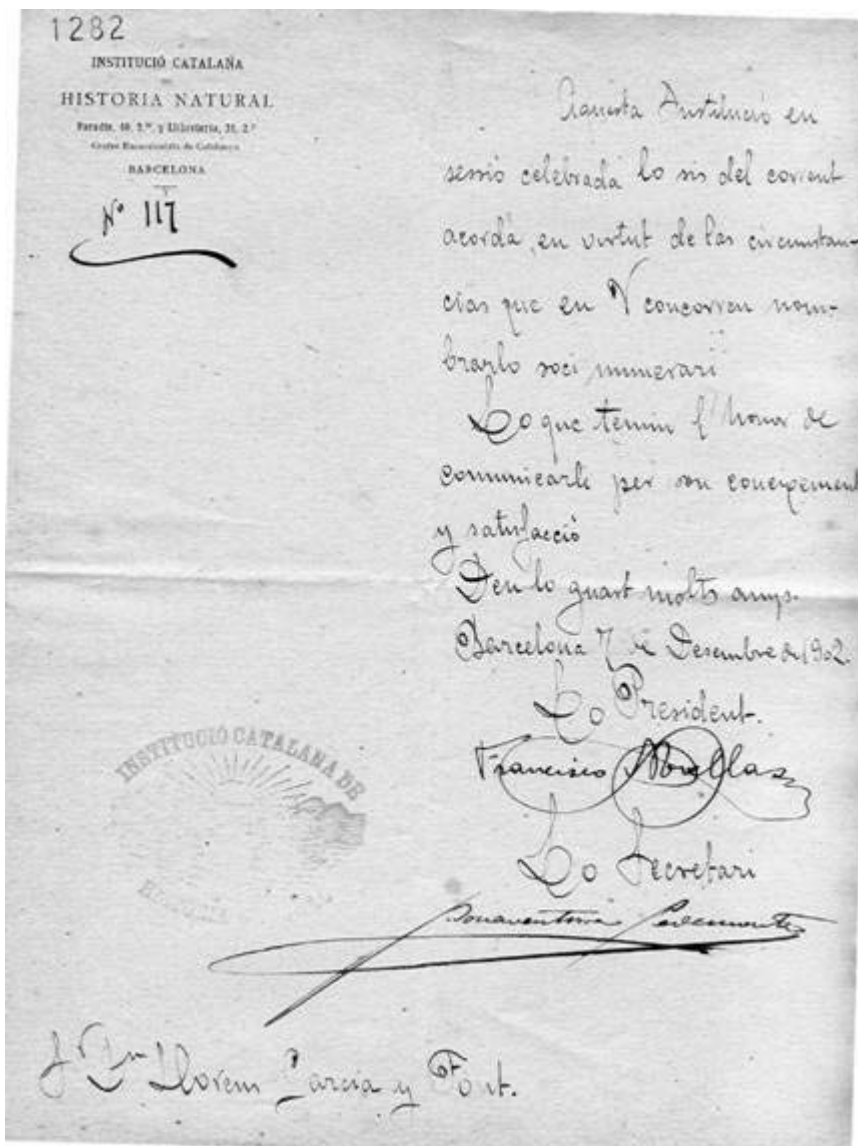 1282
INSTITUCIÓ CATALANA
DE
HISTORIA NATURAL
Paradis, 10, 2.on y Llibreteria, 21, 2.n
Centre Excursionista de Catalunya
BARCELONA
Nº 117
Aquesta Institució en
sessió celebrada lo sis del corrent
acordà, en virtut de las circumstan-
cias que en V concorren nom-
brarlo soci numerari
Lo que tenim l'honor de
comunicarli per son coneixement
y satisfacció
Deu lo guart molts anys.
Barcelona 7 de Desembre de 1902.
Lo President.
Francisco Novellas
Lo Secretari
Bonaventura Pedemonte
INSTITUCIÓ CATALANA DE
HISTORIA
Sr Dn Llorens Garcia y Font.